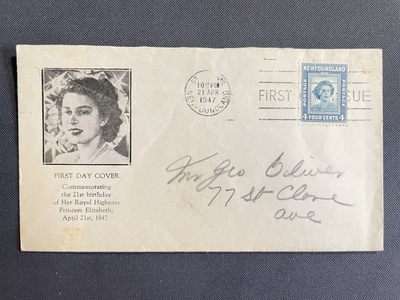 ST. JOHN'S
10 PM
21 APR
1947
NEWFOUNDLAND
FIRST DAY ISSUE
NEWFOUNDLAND
POSTAGE
POSTAGE
4 FOUR CENTS 4
FIRST DAY COVER
Commemorating
the 21st birthday
of Her Royal Highness
Princess Elizabeth,
April 21st, 1947
Mr Geo Oliver
77 St Clare
ave